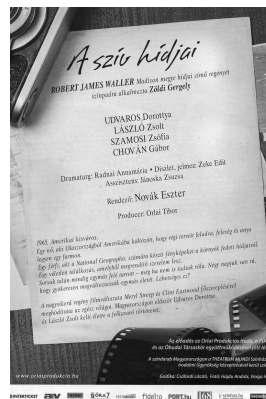 A szív hídjai
ROBERT JAMES WALLER Madison megye hídjai című regényét
színpadra alkalmazta Zöldi Gergely
UDVAROS Dorottya
LÁSZLÓ Zsolt
SZAMOSI Zsófia
CHOVÁN Gábor
Dramaturg: Radnai Annamária • Díszlet, jelmez: Zeke Edit
Asszisztens: Jánoska Zsuzsa
Rendező: Novák Eszter
Producer: Orlai Tibor
1965. Amerikai kisváros.
Egy nő, aki Olaszországból Amerikába költözött, hogy régi terveit feladva, feleség és anya
legyen egy farmon.
Egy férfi, aki a National Geographic számára készít fényképeket a környék fedett hídjairól.
Egy véletlen találkozás, amelyből megrendítő szerelem lesz.
Sorsuk talán mindig egymás felé tartott – még ha nem is tudtak róla. Négy napjuk van rá,
hogy gyökeresen megváltozzanak egymás életét. Lehetséges ez?
A nagysikerű regény filmváltozata Meryl Streep és Clint Eastwood főszereplésével
meghódította az egész világot. Magyarországon először Udvaros Dorottya
és László Zsolt kelti életre a felkavaró történetet.
Az előadás az Orlai Produkciós Iroda, a
és az Óbudai Társaskör együttműködésével jött
A színdarab Magyarországon a THEATRUM MUNDI Színházi
Irodalmi Ügynökség közvetítésével kerül
www.orlaiprodukcio.hu
Grafika: Csáfordi László, Fotó: Hajdu András,
INTERTICKET
fidelio
PORT.hu